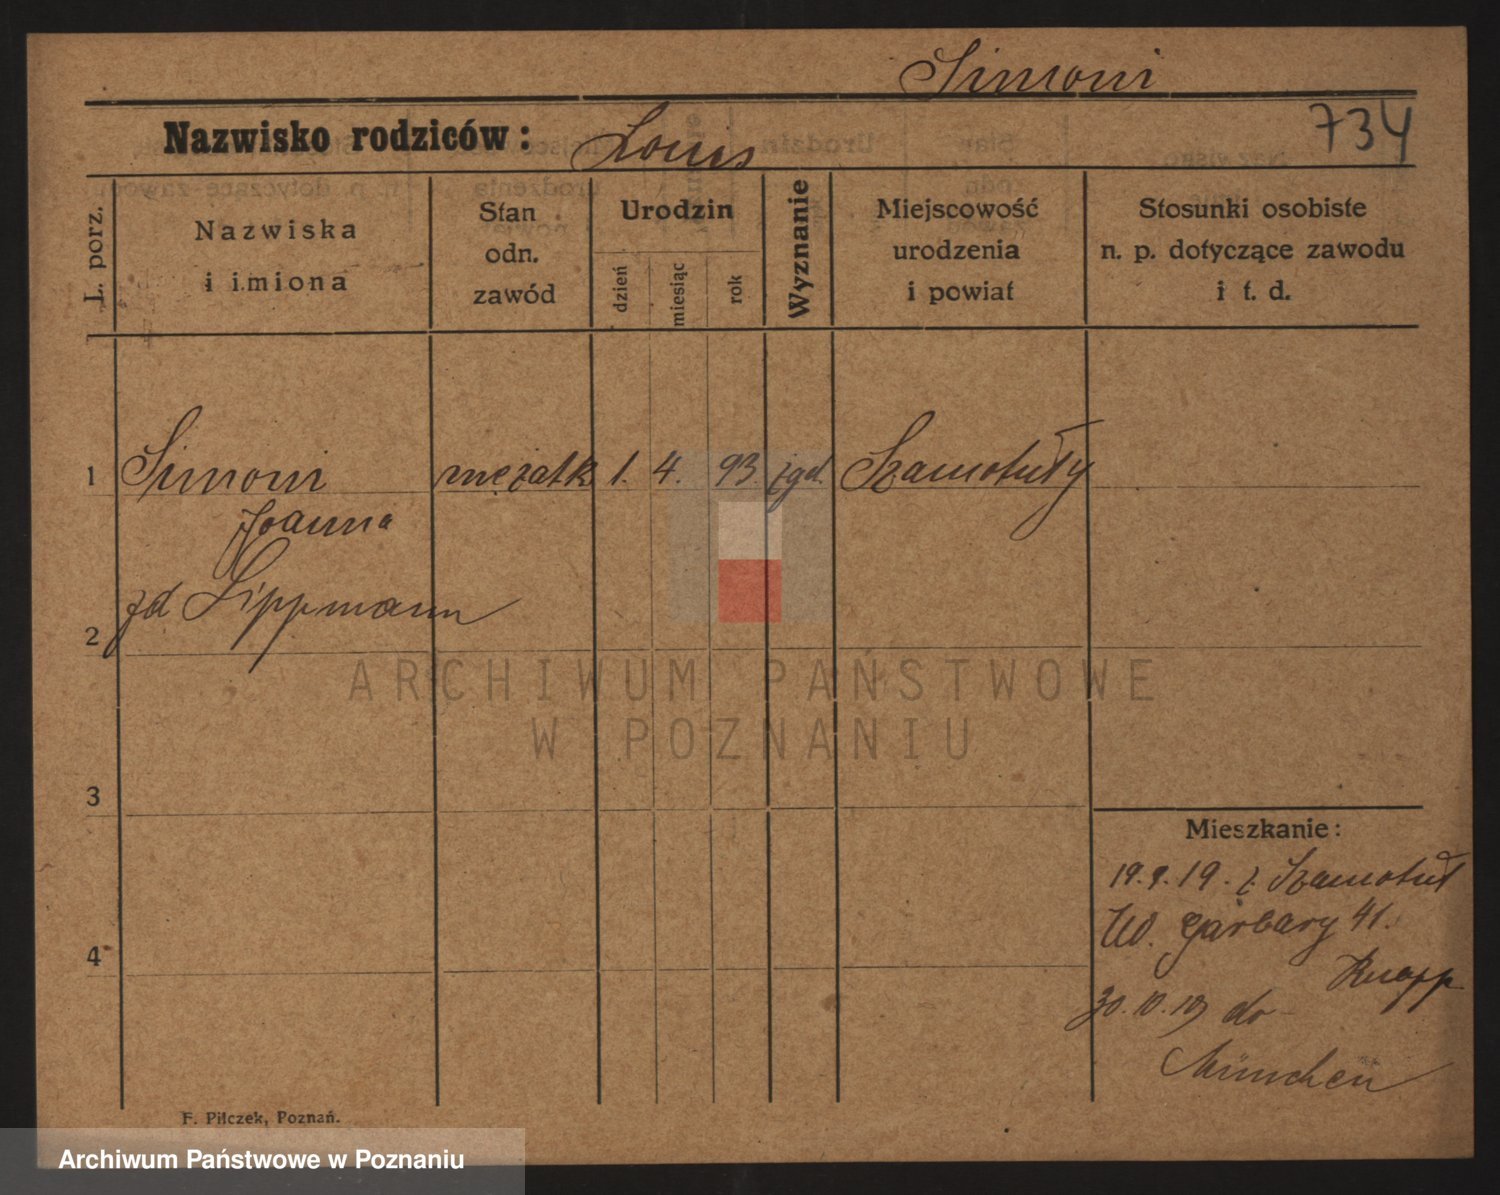 Simoni
Nazwisko rodziców: Louis
734
L. porz.
Nazwiska
i imiona
Stan
odn.
zawód
Urodzin
dzień
miesiąc
rok
Wyznanie
Miejscowość
urodzenia
i powiat
Stosunki osobiste
n. p. dotyczące zawodu
i t. d.
1 Simoni mężatk 1. 4. 93. żyd. Szamotuły
Joanna
2 zd Lippmann
3
4
Mieszkanie:
19.9.19. z Szamotuł
W. Garbary 41.
Knapp
30.10.19 do
München
F. Pilczek, Poznań.
ARCHIWUM PAŃSTWOWE
W POZNANIU
Archiwum Państwowe w Poznaniu